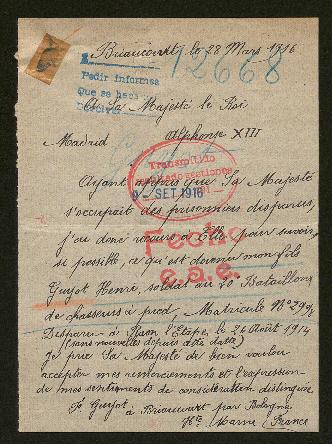 Briaucourt, le 28 Mars 1916
12668
Pedir informes
Que se hace
A Sa Majesté le Roi
Madrid Alphonse XIII
Transmitido
SET 1916
Ayant appris que Sa Majesté
s'occupait des prisonniers disparus,
j'ai donc recours à Elle pour savoir,
si possible, ce qu'est devenu mon fils
Fecho
Guyot Henri, soldat au 20 Bataillons
e.a.e.
de chasseurs à pied, Matricule N°
Disparu à Raon l'Etape, le 24 Août 1914
(sans nouvelles depuis cette date)
Je prie Sa Majesté de bien vouloir
accepter mes remerciements et l'expression
de mes sentiments de considération distinguée
Guyot
à Briaucourt par Bologne
Hte Marne (France